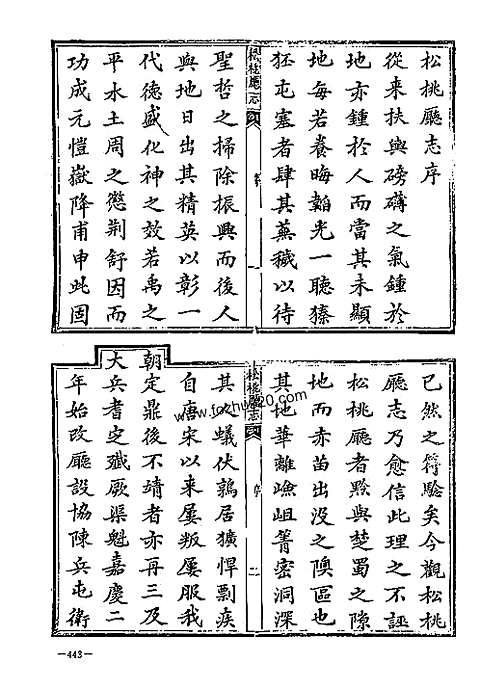 松桃廳志序
從来扶輿磅礴之氣鍾於
地亦鍾於人而當其未顯
地每若養晦韜光一聽獉
狉屯塞者肆其蕪穢以待
松桃廳志
序
一
聖哲之掃除振興而後人
與地日出其精英以彰一
代德盛化神之效若禹之
平水土周之懲荆舒因而
功成元愷嶽降甫申此固
已然之符驗矣今觀松桃
廳志乃愈信此理之不誣
松桃廳者黔與楚蜀之隙
地而赤苗出没之隩區也
其地華離嶮岨箐密洞深
松桃廳志
序
二
其人蟻伏鶉居獷悍剽疾
自唐宋以来屢叛屢服我
朝定鼎後不靖者亦再三及
大兵耆定殲厥渠魁嘉慶二
年始改廳設協陳兵屯衛
—443—